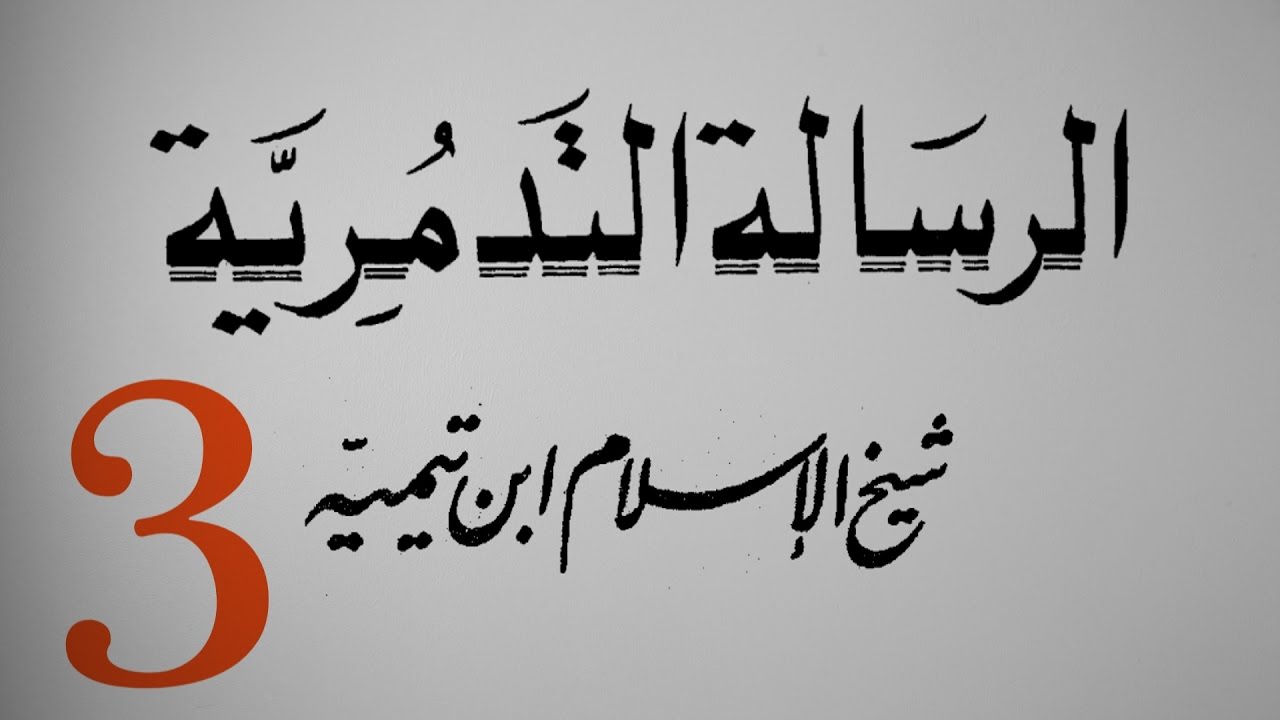 الرسَالة التَدمُرِيَّة
شيخ الإسلام ابن تيميّة
3